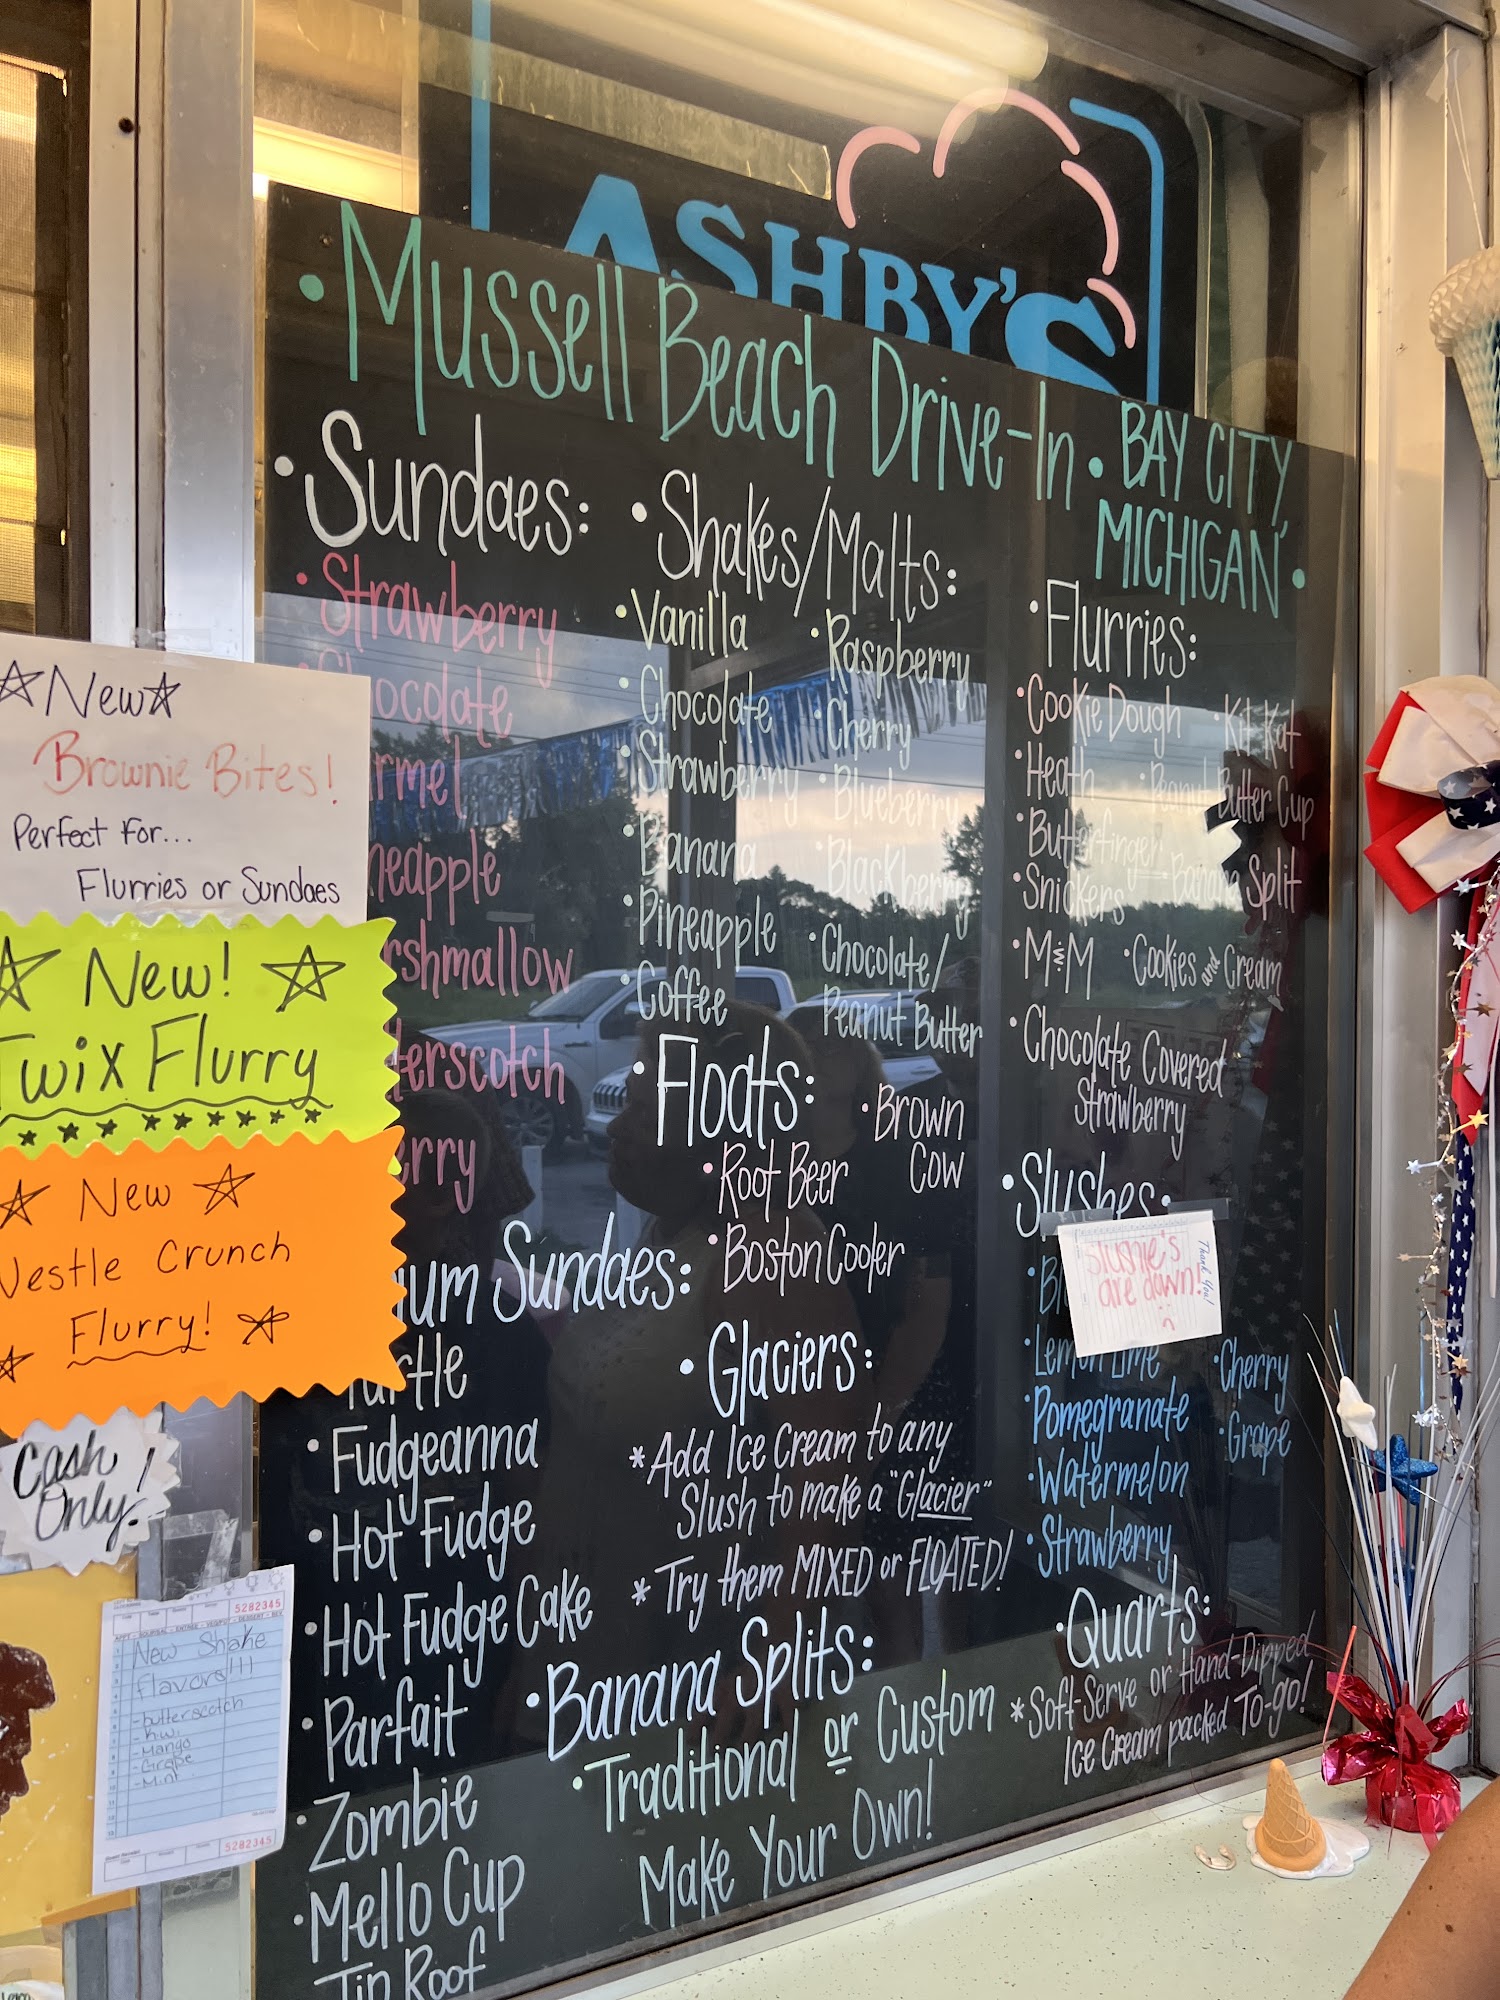 ASHBY'S
• Mussell Beach Drive-In •
BAY CITY,
MICHIGAN •
• Sundaes:
• Strawberry
Chocolate
rmel
neapple
rshmallow
tterscotch
erry
ium Sundaes:
Turtle
• Fudgeanna
• Hot Fudge
• Hot Fudge Cake
• Parfait
• Zombie
• Mello Cup
Tin Roof
• Shakes/Malts:
• Vanilla
• Chocolate
• Strawberry
• Banana
• Pineapple
• Coffee
• Raspberry
• Cherry
• Blueberry
• Blackberry
• Chocolate/
Peanut Butter
• Floats:
• Root Beer
• Boston Cooler
• Brown
Cow
• Glaciers:
* Add Ice Cream to any
Slush to make a "Glacier"
* Try them MIXED or FLOATED!
• Banana Splits:
• Traditional or Custom
Make Your Own!
• Flurries:
• Cookie Dough
• Heath
• Butterfinger
• Snickers
• M&M
• Kit Kat
• Peanut Butter Cup
• Banana Split
• Cookies and Cream
• Chocolate Covered
Strawberry
• Slushes:
Slushie's
are down!
Thank You!
• Bl
• Lemon Lime
• Pomegranate
• Watermelon
• Strawberry
• Cherry
• Grape
• Quarts:
* Soft-Serve or Hand-Dipped
Ice Cream packed To-go!
New
Brownie Bites!
Perfect For...
Flurries or Sundaes
New!
Twix Flurry
New
Nestle Crunch
Flurry!
Cash
Only!
5282345
New Shake
Flavors!!!
- butterscotch
- kiwi
- Mango
- Grape
- Mint
5282345